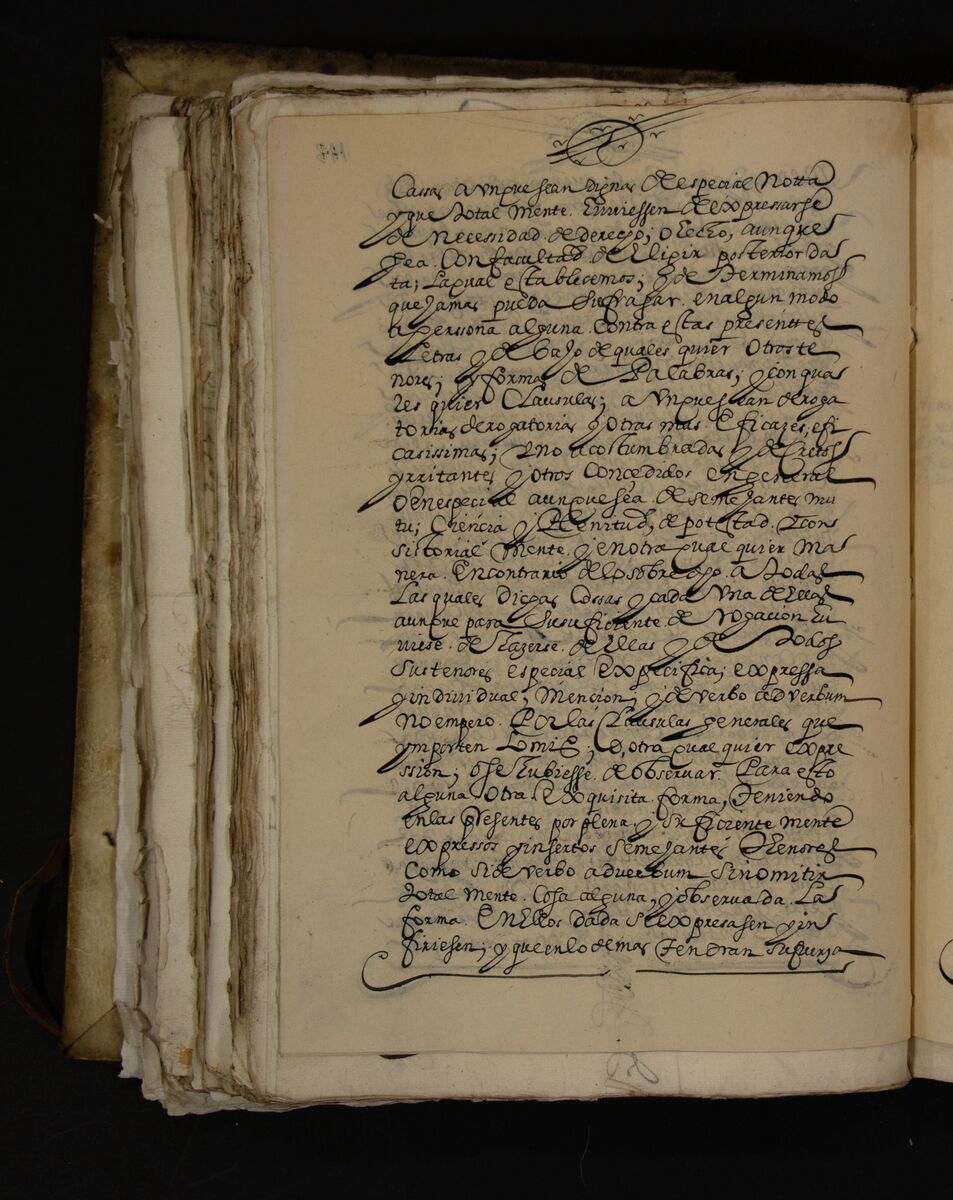 Cassas aVnque sean Dignas de especial Notta
y que total Mente. tuviessen de expressarse
de Necessidad de derecho; o techo, aunque
sea. Con facultad de Elixir posterior da
ta; La qual establecemos; y de terminamos
que Jamas pueda Sufragar. en algun modo
a persona alguna. Contra estas presenttes
Letras y de bajo de quales quier Otros te
nores; y formas de Palabras; y con qua
les quier Clausulas; aVnque sean deroga
torias derogatorias y Otras mas Eficazes, efi
casissimas; y no acostumbradas y decretos
yrritantes y otros Concedidos en general
O en especial aunque sea de semejantes mu
tu; Ciencia y Plenitud, de potestad. Con
sistorial Mente. y en otra qual quier Ma
nera. En contrario de lo sobre dicho. a todas
Las quales Dichas Cossas y cada Vna de Ellas
aunque para su suficiente. derogacion tu
viese. de hazerse. de Ellas y de todos
Sus tenores especial Expecifica; expressa
y individual; Mencion; y de verbo ad verbum
No empero. Por las Clausulas generales que
ymporten Lomis; O, otra qual quier Expre
ssion; o se tubiesse. de observar. Para esto
alguna otra Exquisita forma, teniendo
en las presentes por plena. y suficiente mente
expressos y insertos semejantes thenores
Como si de verbo ad verbum Sin omitir
total Mente. Cosa alguna, y observada. La
forma. En Ellos dada se expresasen y in
siriesen; y que en lo demas tendran su fuerza